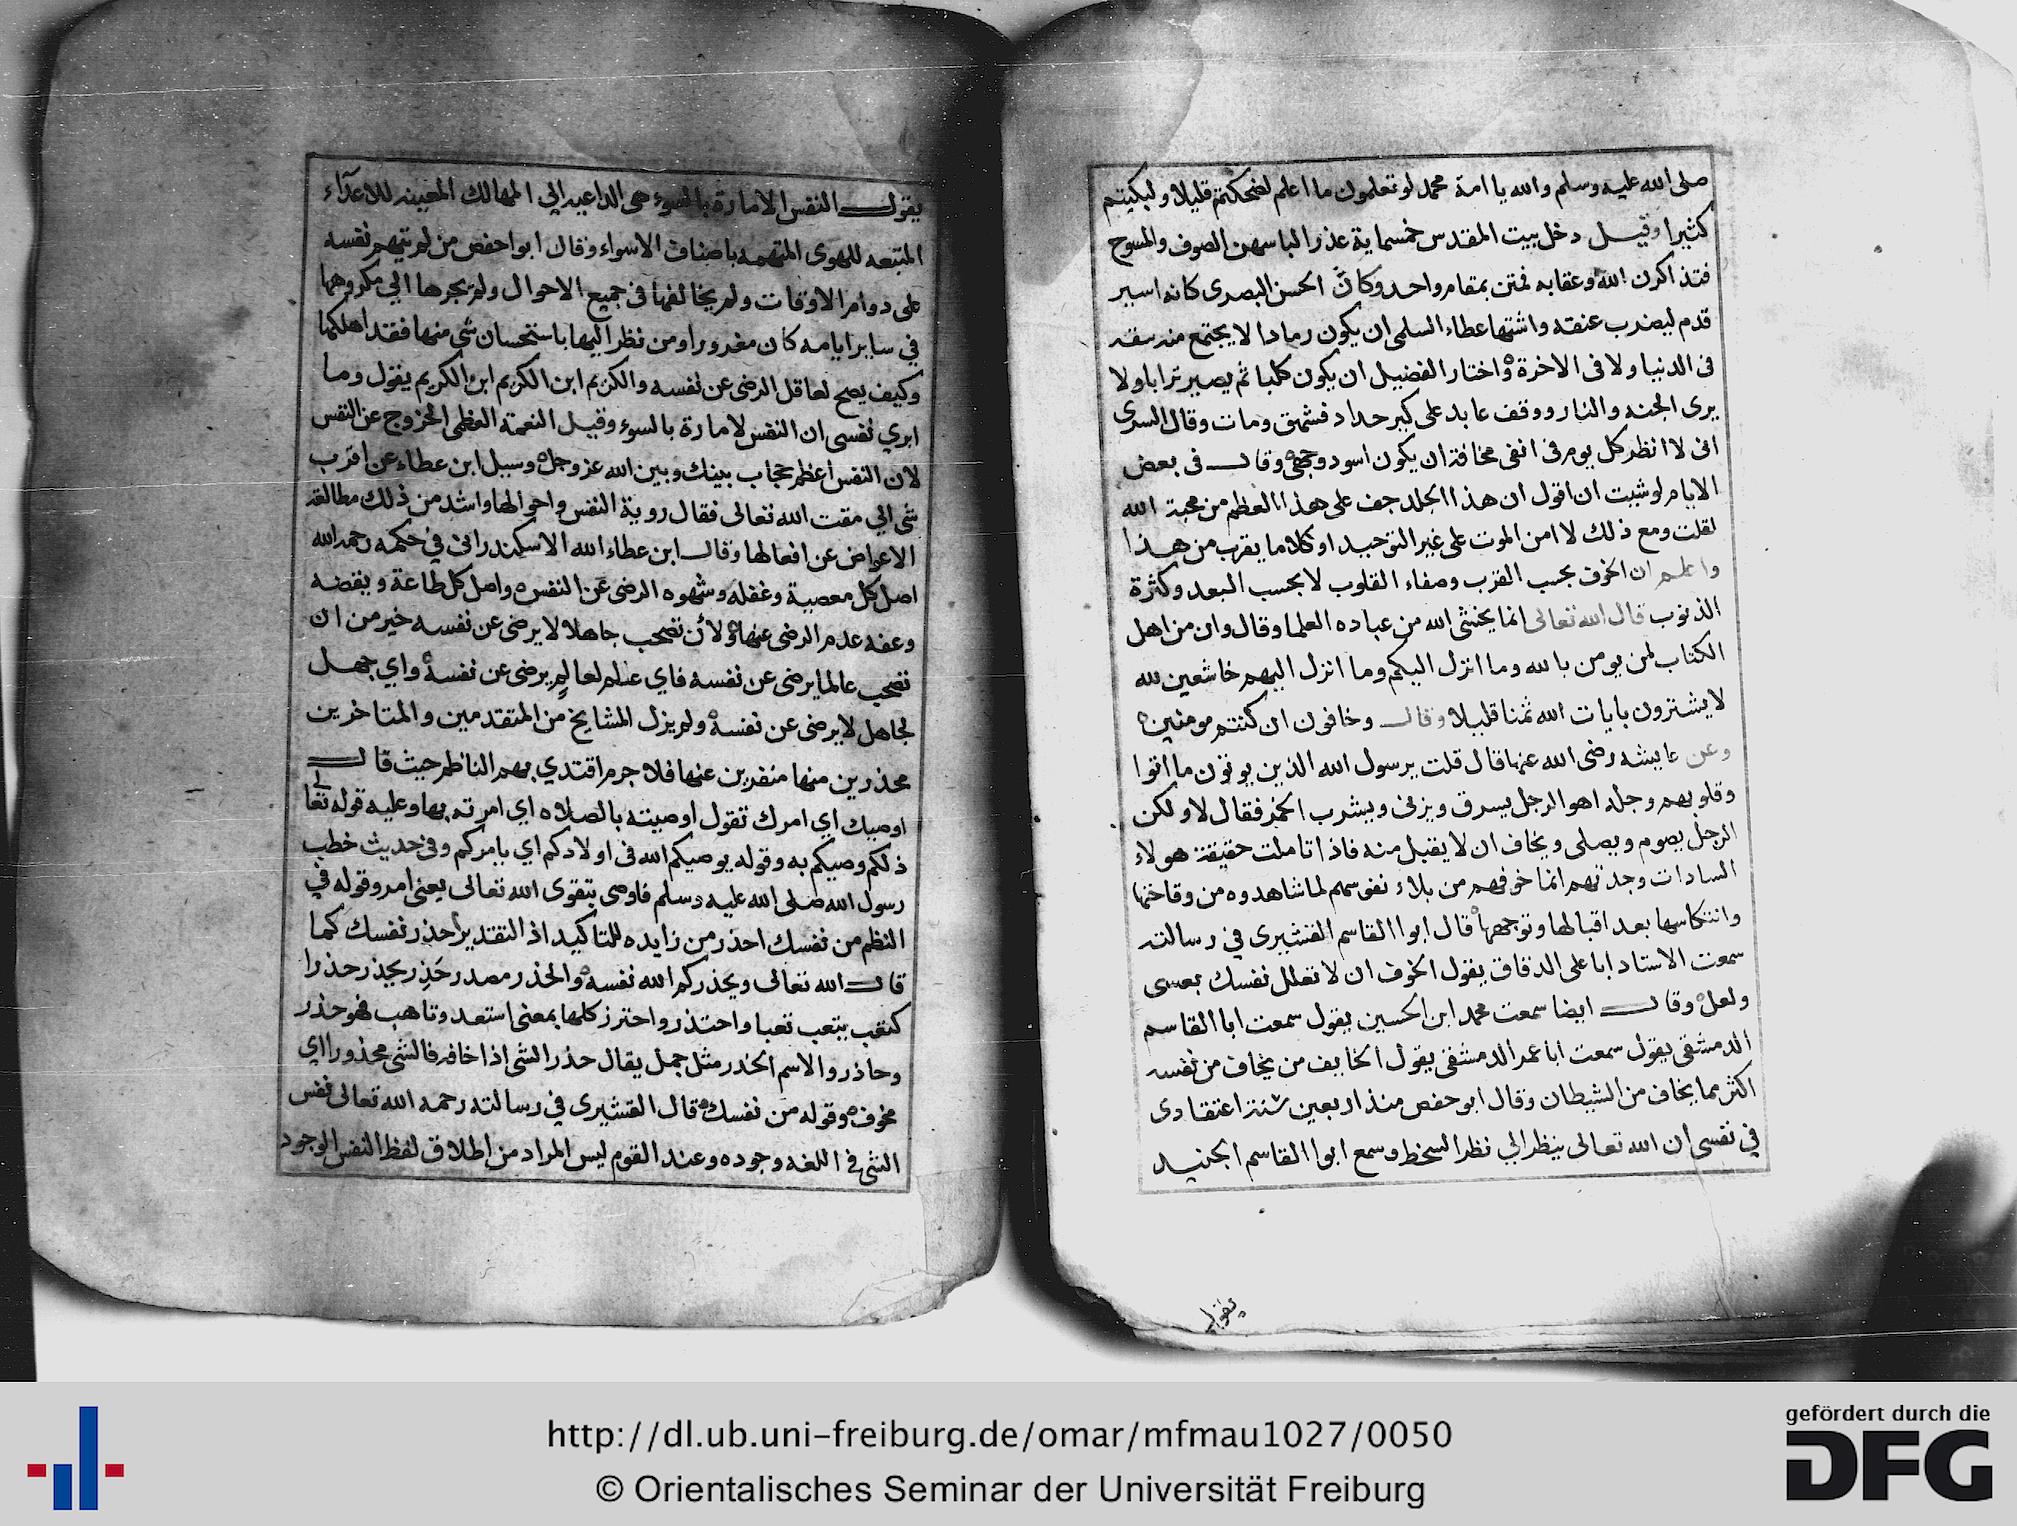 صلى الله عليه وسلم والله يا امة محمد لو تعلمون ما اعلم لضحكتم قليلا ولبكيتم
كثيرا وقيل دخل بيت المقدس خمسماية عذرا لباسهن الصوف والمسوح
فتذاكرن الله وعقابه فمتن بمقام واحد وكان الحسن البصرى كانه اسير
قدم ليضرب عنقه واشتها عطاء السلمى ان يكون رمادا لا يجتمع منه سفه
فى الدنيا ولا فى الاخرة واختار الفضيل ان يكون كلبا ثم يصير ترابا ولا
يرى الجنه والنار ووقف عابد على كير حداد فشهق ومات وقال السرى
انى لا انظر كل يوم فى انفى مخافة ان يكون اسود وجهى وقال فى بعض
الايام لو شيت ان اقول ان هذا الجلد جف على هذا العظم من محبة الله
لقلت ومع ذلك لا امن الموت على غير التوحيد او كلاما يقرب من هذا
واعلم ان الخوف بحسب القرب وصفاء القلوب لا بحسب البعد وكثرة
الذنوب قال الله تعالى انما يخشى الله من عباده العلما وقال وان من اهل
الكتاب لمن يومن بالله وما انزل اليكم وما انزل اليهم خاشعين لله
لا يشترون بايات الله ثمنا قليلا وقال وخافون ان كنتم مومنين
وعن عايشه رضى الله عنها قال قلت يرسول الله الذين يوتون ما اتوا
وقلوبهم وجله اهو الرجل يسرق ويزنى ويشرب الخمر فقال لا ولكن
الرجل يصوم ويصلى ويخاف ان لا يقبل منه فاذا تاملت حقيقة هولاء
السادات وجدتهم انما خوفهم من بلاء نفوسهم لما شاهدوه من وقاحتها
وانتكاسها بعد اقبالها وتوجهها قال ابوا القاسم القشيرى في رسالته
سمعت الاستاد ابا على الدقاق يقول الخوف ان لا تعلل نفسك بعسى
ولعل وقال ايضا سمعت محمد ابن الحسين يقول سمعت ابا القاسم
الدمشقى يقول سمعت ابا عمر الدمشقى يقول الخايف من يخاف من نفسه
اكثر مما يخاف من الشيطان وقال ابو حفص منذ اربعين سنة اعتقادى
في نفسى ان الله تعالى ينظر الي نظر السخط وسمع ابوا القاسم الجنيد
يقول
يقول النفس الامارة بالسوء هى الداعيه الي المهالك المعينه للاعداء
المتبعه للهوى المتهمه باصناف الاسواء وقال ابوا حفص من لم يتهم نفسه
على دوام الاوقات ولم يخالفها فى جميع الاحوال ولم يجرها الي مكروهها
في ساير ايامه كان مغرورا ومن نظر اليها باستحسان شى منها فقد اهلكها
وكيف يصح لعاقل الرضى عن نفسه والكريم ابن الكريم ابن الكريم يقول وما
ابري نفسى ان النفس لامارة بالسوء وقيل النعمة العظمى الخروج عن النفس
لان النفس اعظم حجاب بينك وبين الله عز وجل وسيل ابن عطاء عن اقرب
شى الي مقت الله تعالى فقال روية النفس واحوالها واشد من ذلك مطالعة
الاعواض عن افعالها وقال ابن عطاء الله الاسكندرانى في حكمه رحمه الله
اصل كل معصية وغفله وشهوه الرضى عن النفس واصل كل طاعة ويقضه
وعفه عدم الرضى عنها ولأن تصحب جاهلا لا يرضى عن نفسه خير من ان
تصحب عالما يرضى عن نفسه فاي علم لعالم يرضى عن نفسه واي جهل
لجاهل لا يرضى عن نفسه ولم يزل المشايخ من المتقدمين والمتاخرين
محذرين منها منفرين عنها فلا جرم اقتدي بهم الناظم حيث قال
اوصيك اي امرك تقول اوصيته بالصلاه اي امرته بها وعليه قوله تعالى
ذلكم وصيكم به وقوله يوصيكم الله فى اولادكم اي يامركم وفى حديث خطب
رسول الله صلى الله عليه وسلم فاوصى بتقوى الله تعالى يعنى امر وقوله في
النظم من نفسك احذر من زايده للتاكيد اذ التقدير أحذر نفسك كما
قال الله تعالى ويحذركم الله نفسه والحذر مصدر حَذِر يحذر حذرا
كتعب يتعب تعبا واحتذر واحترز كلها بمعنى استعد وتاهب فهو حذر
وحاذر والاسم الحذر مثل جمل يقال حذر الشى اذا خافه فالشى محذورا اي
مخوف وقوله من نفسك قال القشيرى في رسالته رحمه الله تعالى نفس
الشى فى اللغه وجوده وعند القوم ليس المراد من اطلاق لفظ النفس الوجود
http://dl.ub.uni-freiburg.de/omar/mfmau1027/0050
© Orientalisches Seminar der Universität Freiburg
gefördert durch die
DFG